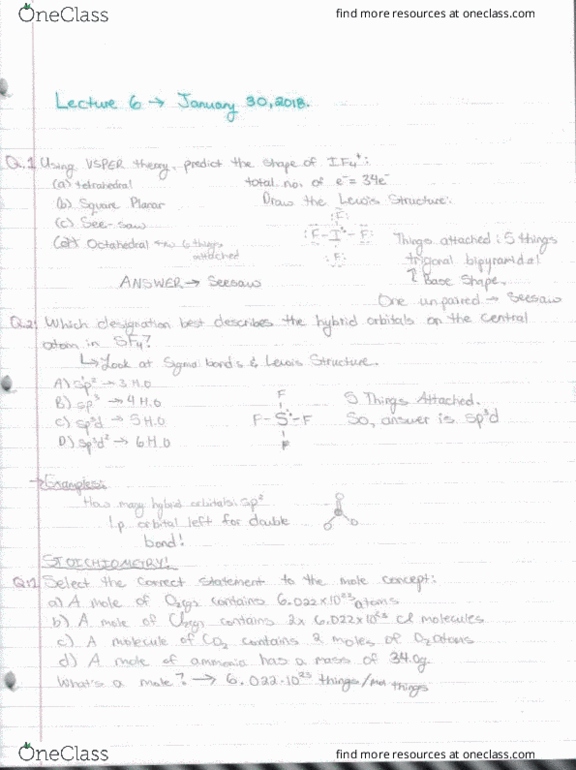 OneClass find more resources at oneclass.com
Lecture 6 → January 30, 2018.
Q.1 Using VSPER theory, predict the shape of IF₄⁺:
(a) tetrahedral total no. of e⁻ = 34e⁻
(b) Square Planar Draw the Lewis Structure:
(c) See-saw
(d) Octahedral → 6 things attached
:F:
:F-I-F: Things attached: 5 things
:F: trigonal bipyramidal
↑ Base Shape.
ANSWER → Seesaw
One unpaired → Seesaw
Q.2: Which designation best describes the hybrid orbitals on the central
atom in SF₄?
↳ Look at Sigma bonds & Lewis Structure.
A) sp² → 3 H.O
B) sp³ → 4 H.O
C) sp³d → 5 H.O
D) sp³d² → 6 H.O
F
F-S-F
F
5 Things Attached.
So, answer is sp³d
→ Examples:
How many hybrid orbitals: sp²
1p orbital left for double
bond!
STOICHIOMETRY!
Q.12 Select the correct statement to the mole concept:
a) A mole of O₂(g) contains 6.022x10²³ atoms
b) A mole of Cl₂(g) contains 2x 6.022x10²³ Cl molecules
c) A molecule of CO₂ contains 2 moles of O₂ atoms
d) A mole of ammonia has a mass of 34.0g
What's a mole? → 6.022·10²³ things/mol things
OneClass find more resources at oneclass.com